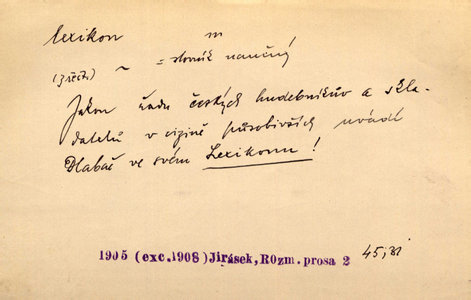 lexikon m
(z řečt.) ~ = slovník naučný
Jakou řadu českých hudebníkův a skla-
datelů v cizině působivších uvádí
Dlabač ve svém Lexikonu!
1905 (exc.1908) Jirásek, Rozm. prosa 2 45,